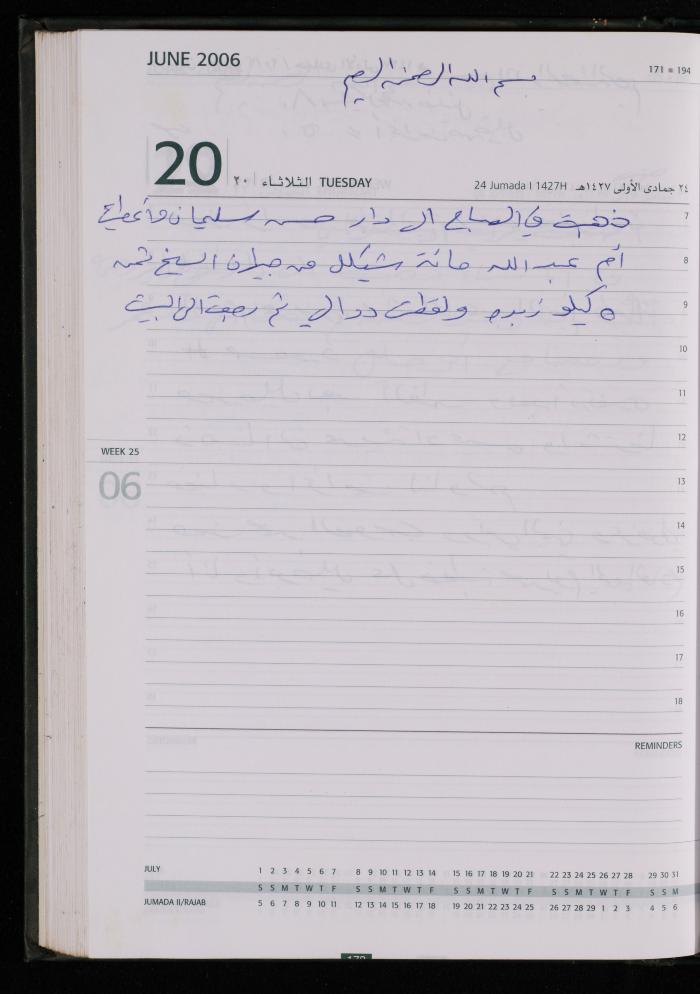 JUNE 2006
171 = 194
بسم الله الرحمن الرحيم
20 ٢٠ الثلاثاء TUESDAY
24 Jumada I 1427H ٢٤ جمادى الأولى ١٤٢٧هـ
7
ذهبت في الصباح الى دار حسن سليمان وأعطاني
8
أم عبد الله مائة شيكل من جيران الشيخ ثمن
9
٥ كيلو زبده ولقطت دوالي ثم رجعت الى البيت
10
11
12
WEEK 25
06
13
14
15
16
17
18
REMINDERS
JULY 1 2 3 4 5 6 7 8 9 10 11 12 13 14 15 16 17 18 19 20 21 22 23 24 25 26 27 28 29 30 31
S S M T W T F S S M T W T F S S M T W T F S S M T W T F S S M
JUMADA II/RAJAB 5 6 7 8 9 10 11 12 13 14 15 16 17 18 19 20 21 22 23 24 25 26 27 28 29 1 2 3 4 5 6